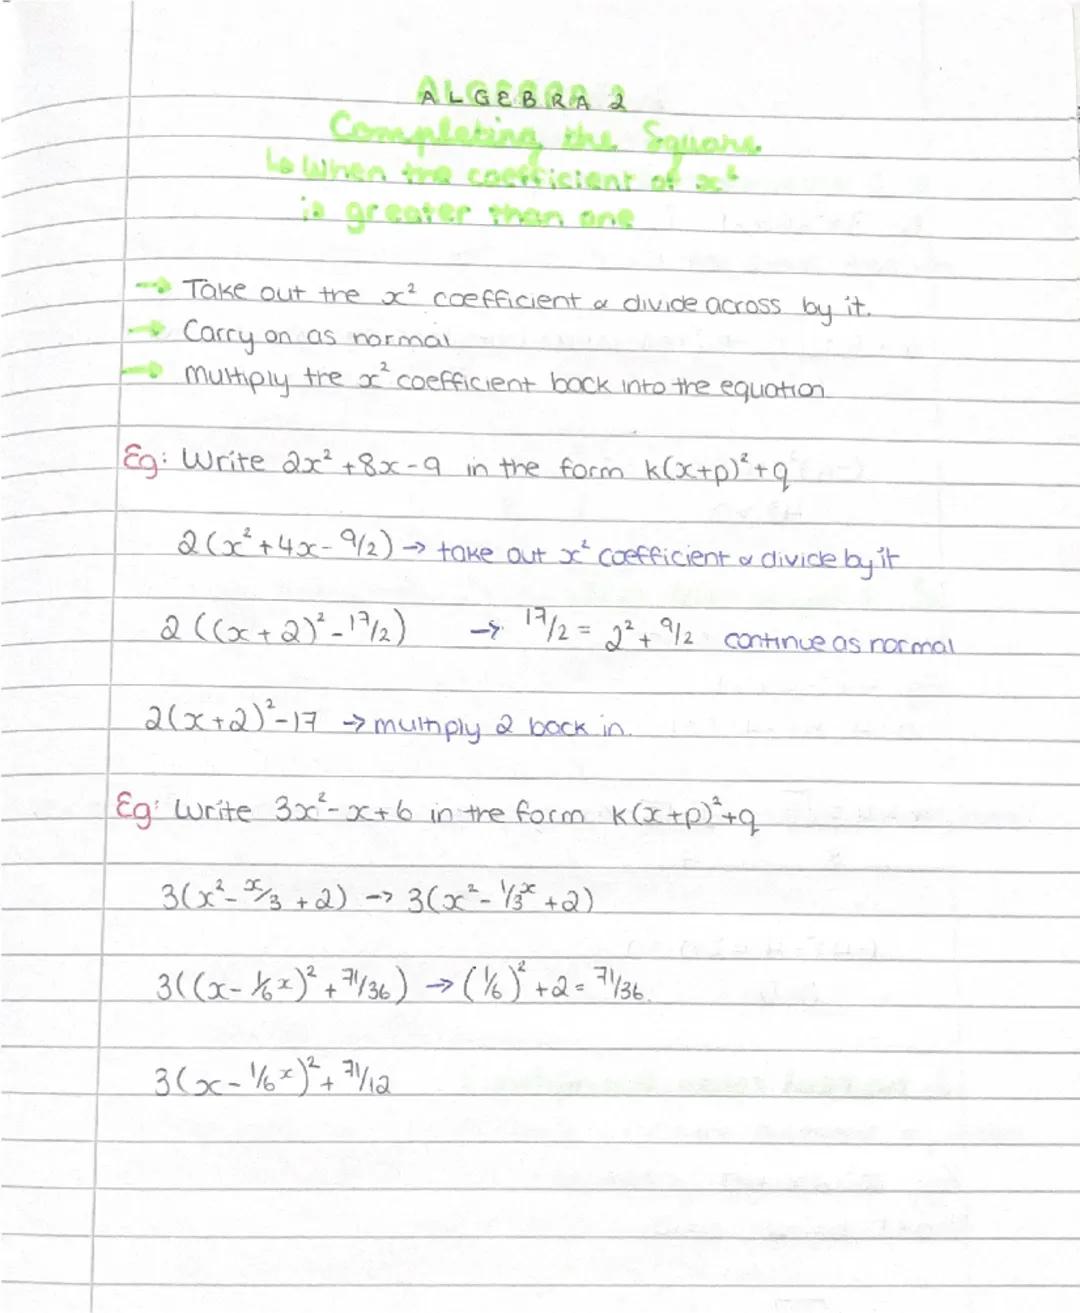 ALGEBRA 2
Completing the Square
↳ When the coefficient of x²
is greater than one
→ Take out the x² coefficient & divide across by it.
→ Carry on as normal
→ multiply the x² coefficient back into the equation
Eg: Write 2x² +8x-9 in the form k(x+p)²+q
2(x²+4x-9/2) → take out x² coefficient & divide by it
2((x+2)²-17/2) → 17/2 = 2²+9/2 continue as normal
2(x+2)²-17 → multiply 2 back in.
Eg: Write 3x²-x+6 in the form k(x+p)²+q
3(x²-x/3+2) → 3(x²-1/3x+2)
3((x-1/6x)²+71/36) → (1/6)²+2=71/36.
3(x-1/6x)²+71/12